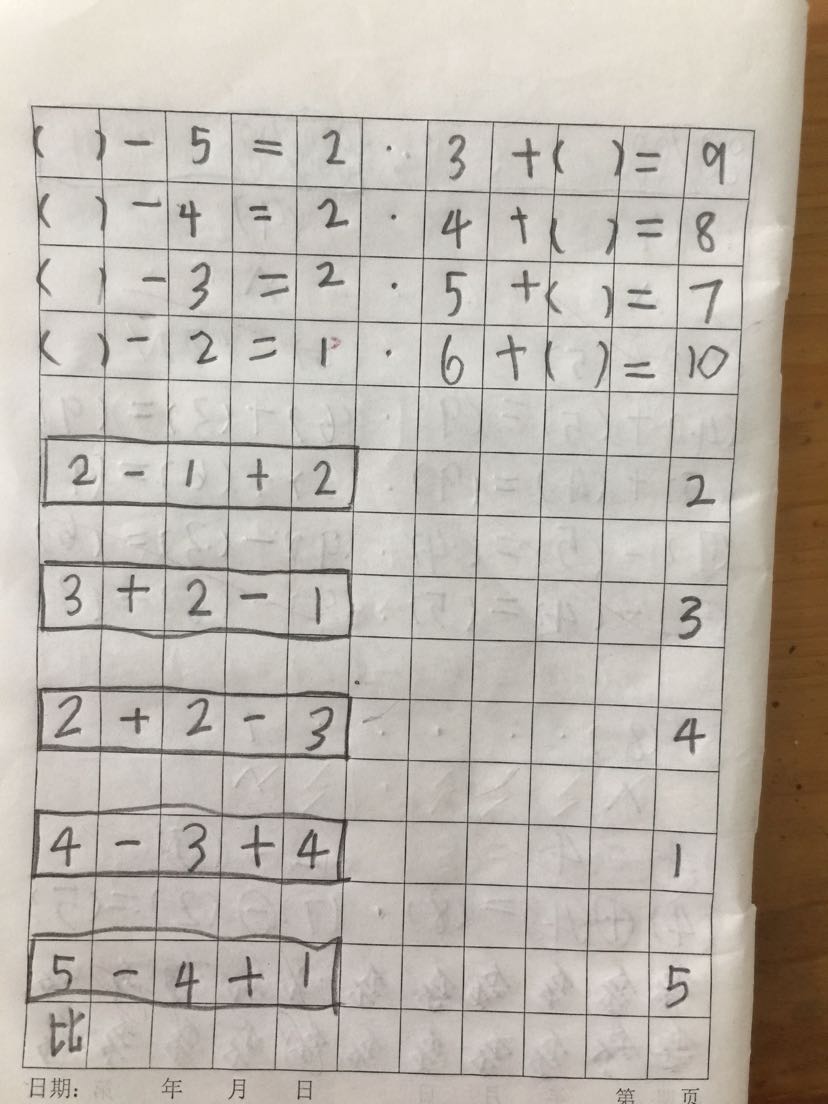 ( ) - 5 = 2 · 3 + ( ) = 9
( ) - 4 = 2 · 4 + ( ) = 8
( ) - 3 = 2 · 5 + ( ) = 7
( ) - 2 = 1 · 6 + ( ) = 10
2 - 1 + 2 2
3 + 2 - 1 3
2 + 2 - 3 4
4 - 3 + 4 1
5 - 4 + 1 5
比
日期: 年 月 日 第 页